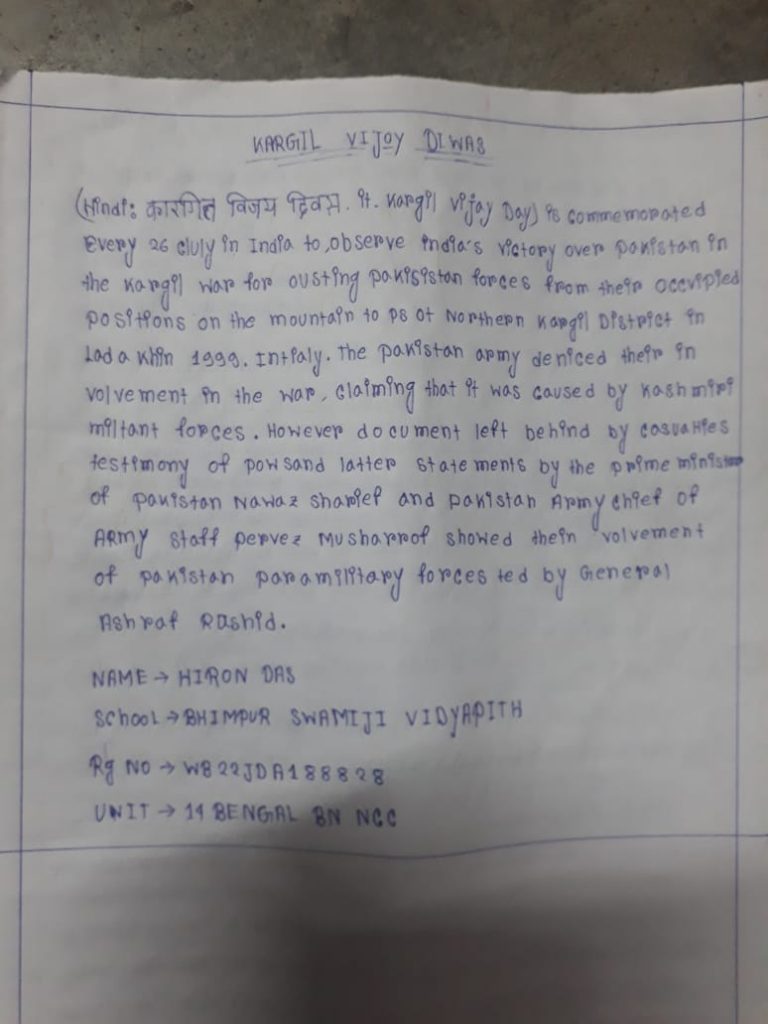 KARGIL VIJOY DIWAS
(Hindi: कारगित विजय द्रिवस. It. Kargil Vijay Day) is commemorated
Every 26 cluly in India to, observe india's victory over pakistan in
the Kargil war for ousting pakisistan forces from their occvipied
positions on the mountain to ps of Northern Kargil District in
Lad a Khin 1999. Intialy. The pakistan army deniced their in
volvement in the war, claiming that it was caused by Kashmiri
miltant forces. However document left behind by casualties
testimony of powsand latter statements by the prime minister
of pakistan Nawaz sharief and pakistan Army chief of
ARmy staff pervez Musharrof showed thein volvement
of pakistan paramilitary forces ted by General
Ashraf Rashid.
NAME → HIRON DAS
School → BHIMPUR SWAMIJI VIDYAPITH
Rg No → WB22JDA188828
UNIT → 14 BENGAL BN NCC